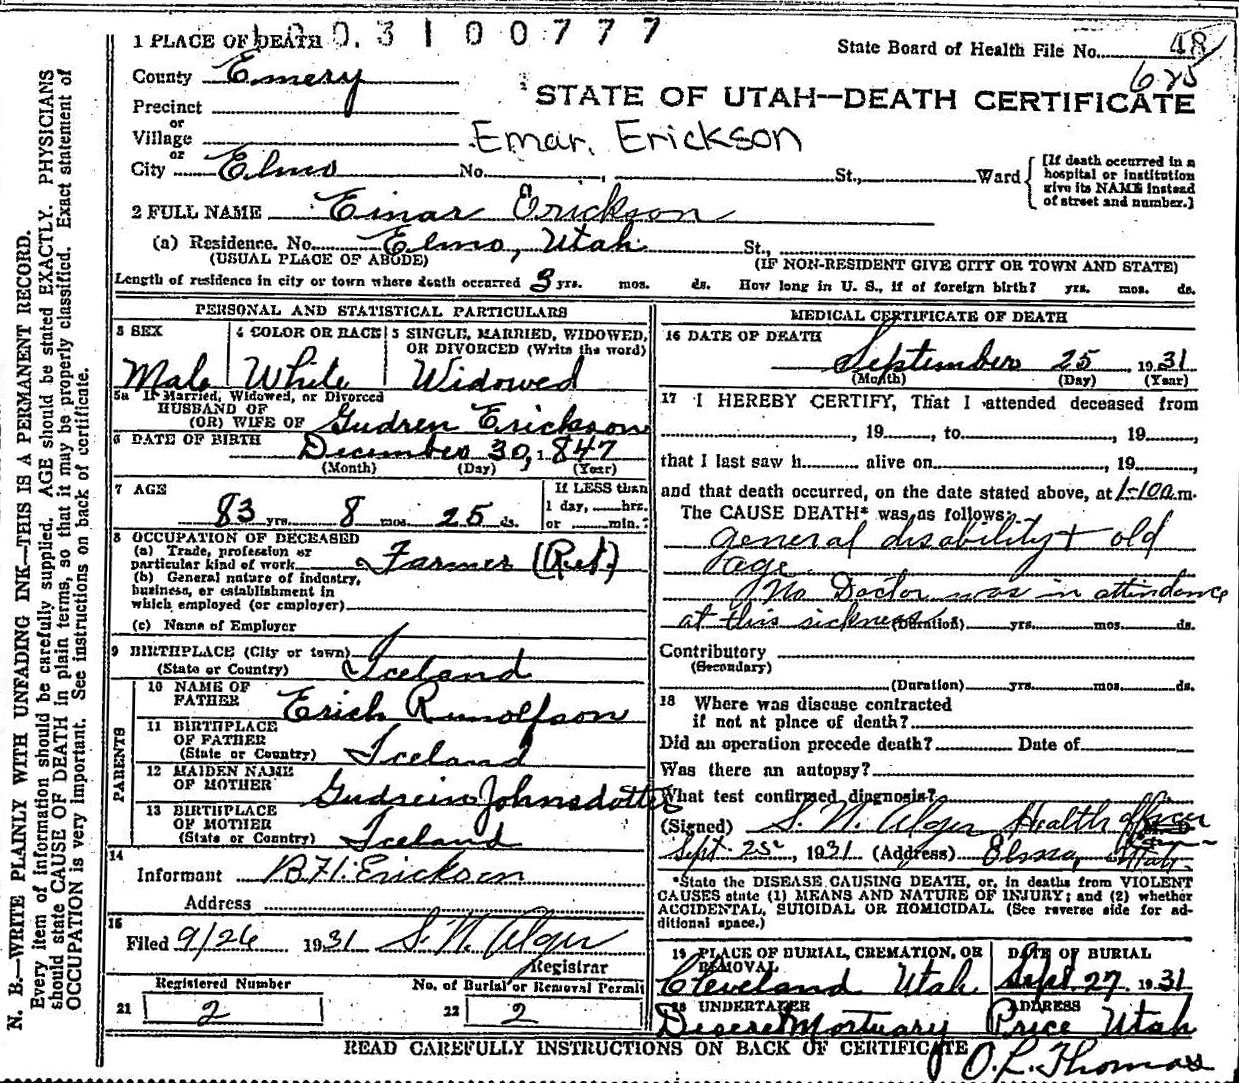 1003100777
1 PLACE OF DEATH
State Board of Health File No. 48
625
County Emery
STATE OF UTAH—DEATH CERTIFICATE
Precinct
or
Village
Emar. Erickson
or
City Elmo No. , St., Ward
[If death occurred in a hospital or institution give its NAME instead of street and number.]
2 FULL NAME Einar Erickson
(a) Residence. No. Elmo, Utah St.,
(USUAL PLACE OF ABODE) (IF NON-RESIDENT GIVE CITY OR TOWN AND STATE)
Length of residence in city or town where death occurred 3 yrs. mos. ds. How long in U. S., if of foreign birth? yrs. mos. ds.
PERSONAL AND STATISTICAL PARTICULARS
3 SEX
Male
4 COLOR OR RACE
White
5 SINGLE, MARRIED, WIDOWED, OR DIVORCED (Write the word)
Widowed
5a If Married, Widowed, or Divorced
HUSBAND OF
(OR) WIFE OF Gudren Erickson
6 DATE OF BIRTH December 30, 1847
(Month) (Day) (Year)
7 AGE
83 yrs. 8 mos. 25 ds.
If LESS than
1 day, hrs.
or min.?
8 OCCUPATION OF DECEASED
(a) Trade, profession or
particular kind of work Farmer (Ret.)
(b) General nature of industry,
business, or establishment in
which employed (or employer)
(c) Name of Employer
9 BIRTHPLACE (City or town)
(State or Country) Iceland
PARENTS
10 NAME OF
FATHER Erick Runolfson
11 BIRTHPLACE
OF FATHER
(State or Country) Iceland
12 MAIDEN NAME
OF MOTHER Gudrein Johnsdotter
13 BIRTHPLACE
OF MOTHER
(State or Country) Iceland
14
Informant B.H. Erickson
Address
15
Filed 9/26 1931 S. N. Alger
Registrar
Registered Number
21 2
No. of Burial or Removal Permit
22 2
MEDICAL CERTIFICATE OF DEATH
16 DATE OF DEATH
September 25, 1931
(Month) (Day) (Year)
17 I HEREBY CERTIFY, That I attended deceased from
, 19 , to , 19 ,
that I last saw h alive on , 19 ,
and that death occurred, on the date stated above, at 1-10 a.m.
The CAUSE DEATH* was as follows:
general disability + old
age
No Doctor was in attendence
at this sickness (Duration) yrs. mos. ds.
Contributory
(Secondary)
(Duration) yrs. mos. ds.
18 Where was disease contracted
if not at place of death?
Did an operation precede death? Date of
Was there an autopsy?
What test confirmed diagnosis?
(Signed) S. N. Alger Health officer
Sept 25, 1931 (Address) Elmo, Utah
*State the DISEASE CAUSING DEATH, or, in deaths from VIOLENT
CAUSES state (1) MEANS AND NATURE OF INJURY; and (2) whether
ACCIDENTAL, SUICIDAL OR HOMICIDAL. (See reverse side for ad-
ditional space.)
19 PLACE OF BURIAL, CREMATION, OR
REMOVAL
Cleveland Utah
DATE OF BURIAL
Sept 27, 1931
20 UNDERTAKER
Deseret Mortuary
ADDRESS
Price Utah
READ CAREFULLY INSTRUCTIONS ON BACK OF CERTIFICATE
O. L. Thomas
N. B.—WRITE PLAINLY WITH UNFADING INK—THIS IS A PERMANENT RECORD.
Every item of information should be carefully supplied. AGE should be stated EXACTLY. PHYSICIANS
should state CAUSE OF DEATH in plain terms, so that it may be properly classified. Exact statement of
OCCUPATION is very important. See instructions on back of certificate.